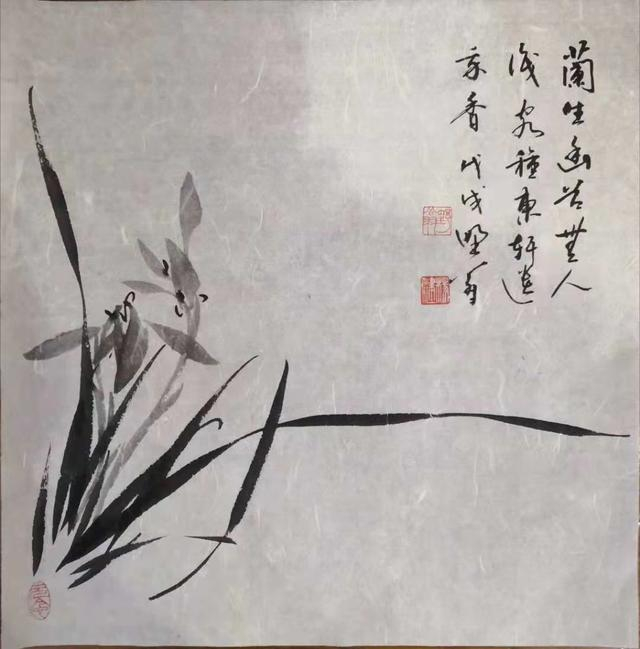 蘭生幽谷無人
識客種東軒遺
我香 戊戌